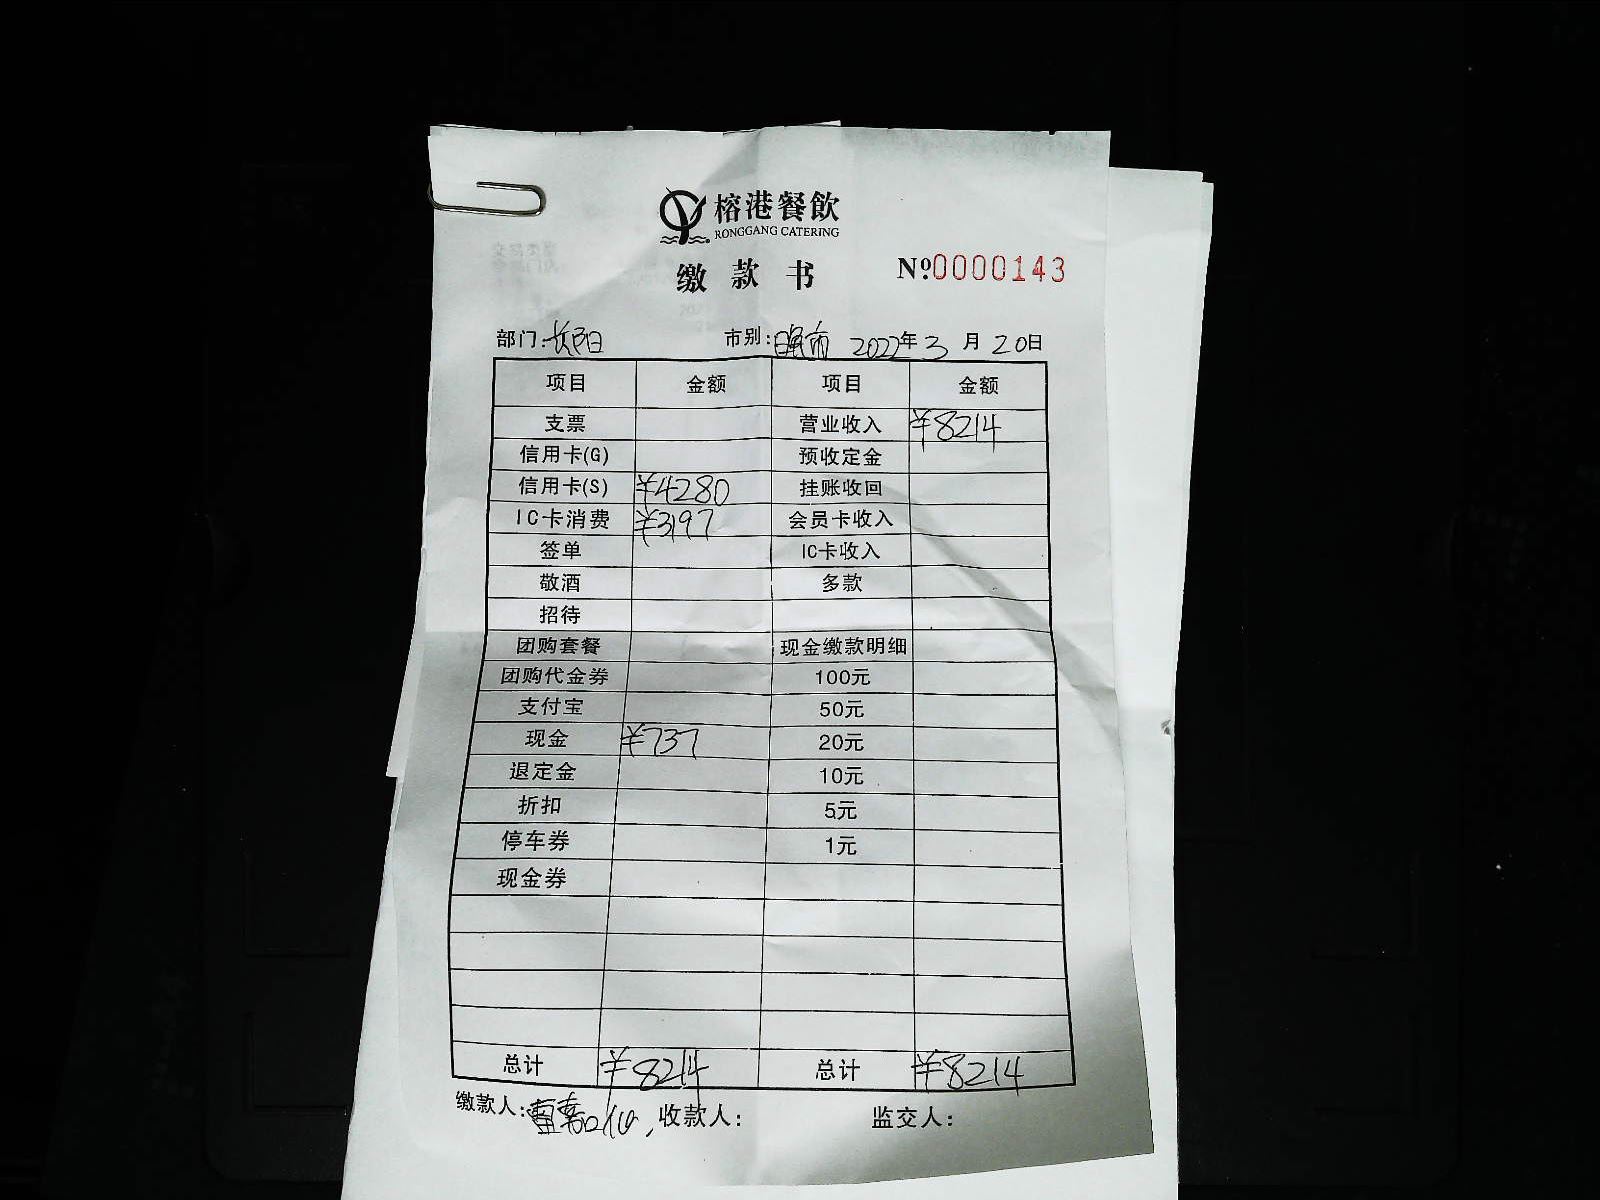 榕港餐飲
RONGGANG CATERING
缴款书
№0000143
部门:长阳 市别:晚市 2022年3月20日
项目 金额 项目 金额
支票 营业收入 ¥8214
信用卡(G) 预收定金
信用卡(S) ¥4280 挂账收回
IC卡消费 ¥3197 会员卡收入
签单 IC卡收入
敬酒 多款
招待
团购套餐 现金缴款明细
团购代金券 100元
支付宝 50元
现金 ¥737 20元
退定金 10元
折扣 5元
停车券 1元
现金券
总计 ¥8214 总计 ¥8214
缴款人: 收款人: 监交人: